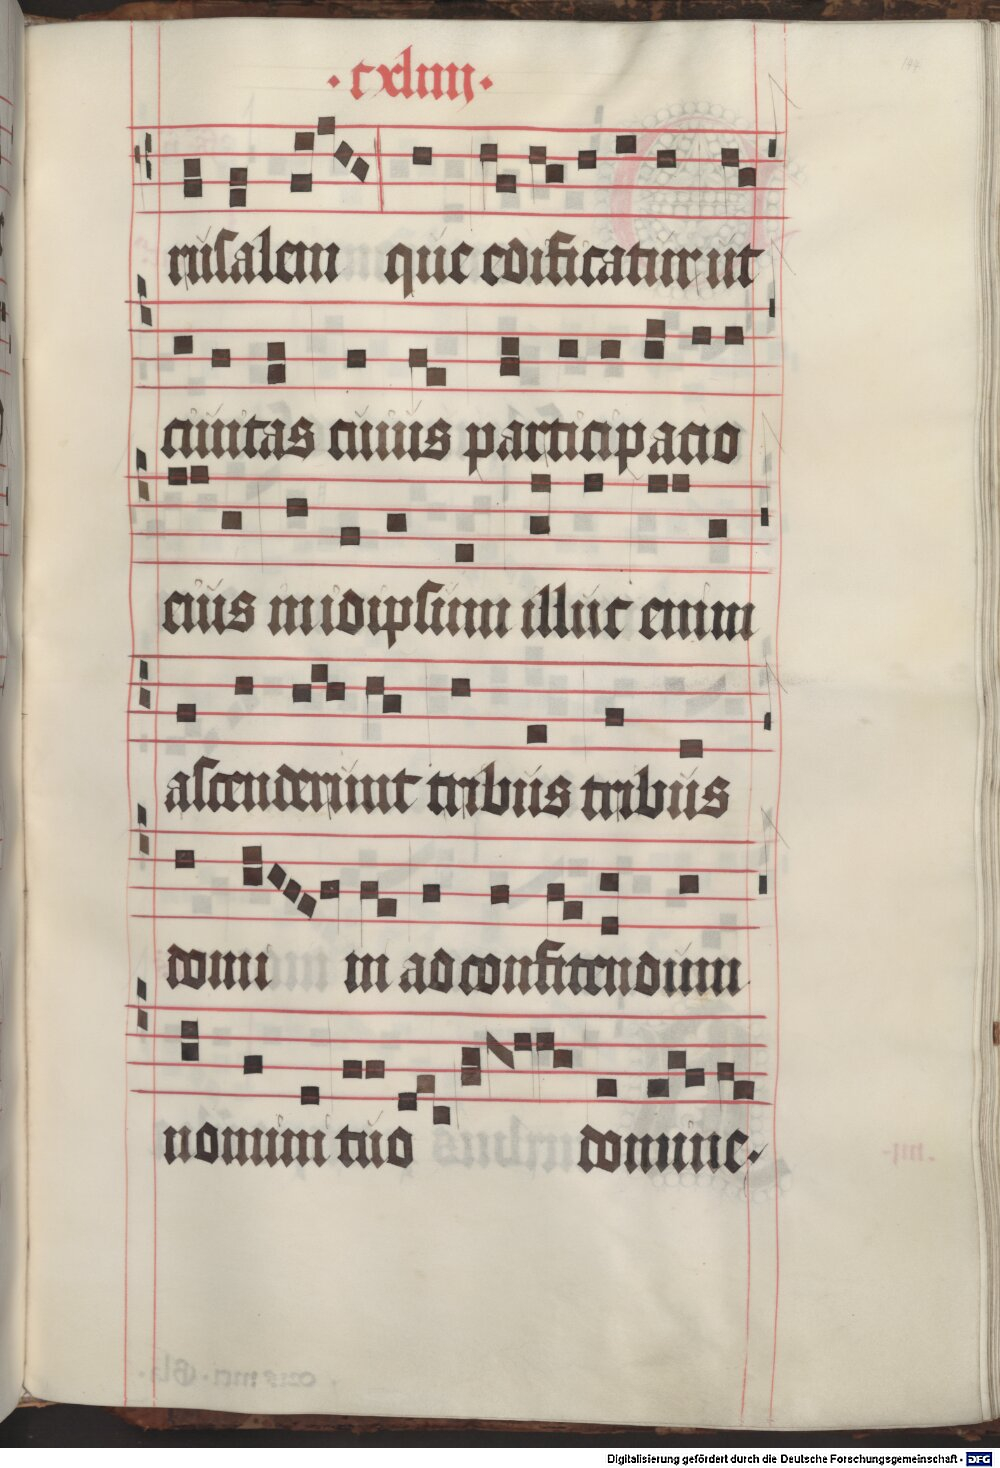 · cxliiij ·
144
rusalem que edificatur ut
ciuitas cuius participacio
eius in idipsum illuc enim
ascenderunt tribus tribus
domi ni ad confitendum
nomini tuo domine.
Digitalisierung gefördert durch die Deutsche Forschungsgemeinschaft - DFG